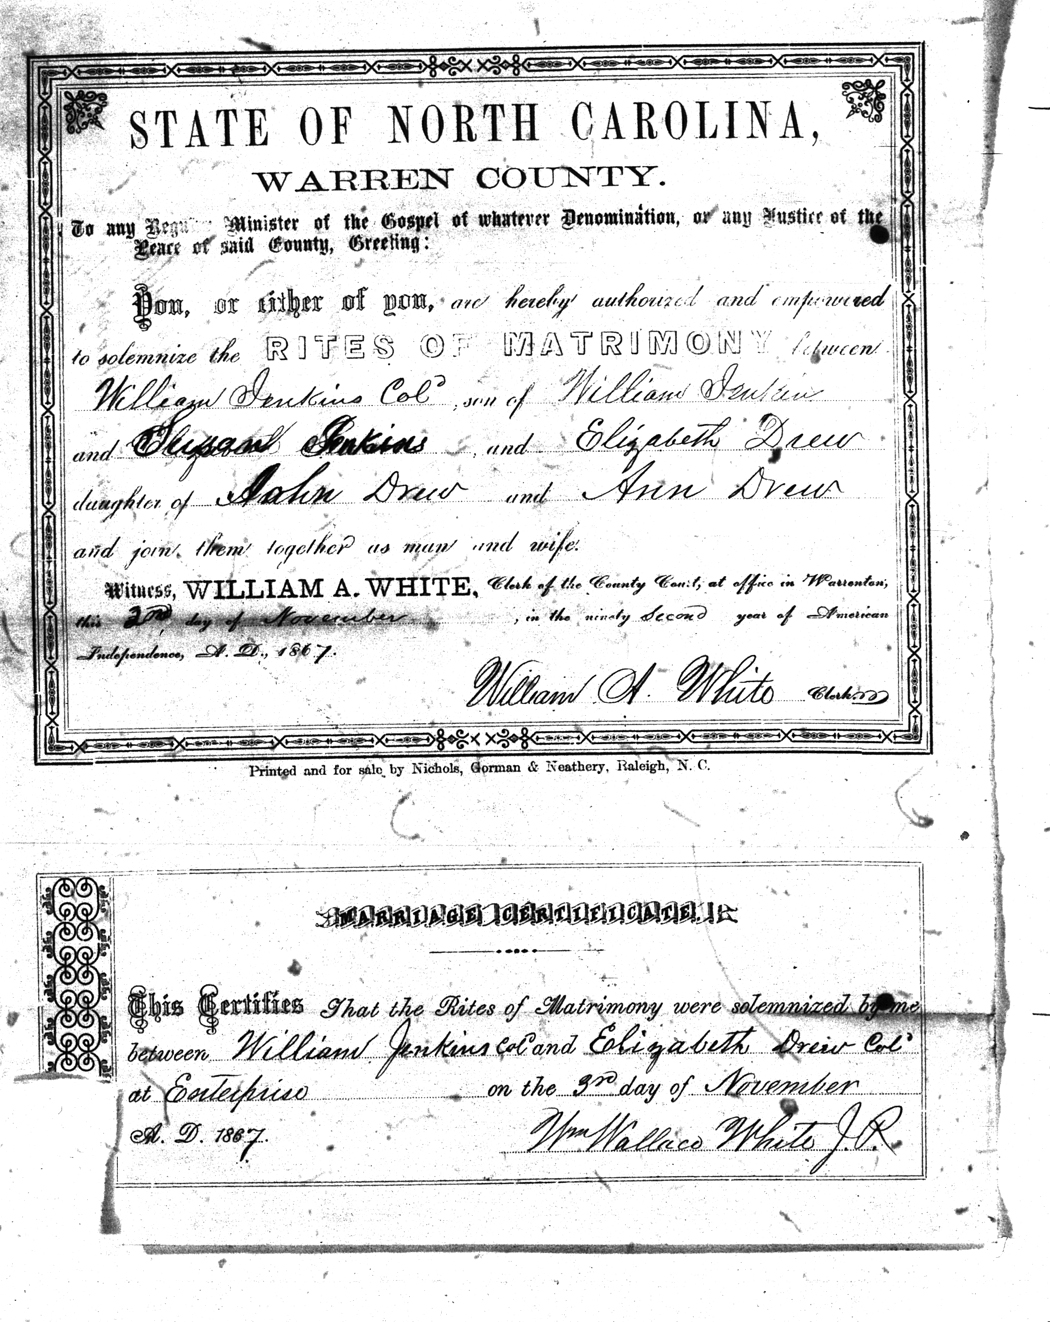 STATE OF NORTH CAROLINA,
WARREN COUNTY.
To any Minister of the Gospel of whatever Denomination, or any Justice of the
Peace of said County, Greeting:
You, or either of you, are hereby authorized and empowered
to solemnize the RITES OF MATRIMONY between
William Jenkins Cold, son of William Jenkins
and Jenkins, and Elizabeth Drew
daughter of John Drew and Ann Drew
and join them together as man and wife.
Witness, WILLIAM A. WHITE, Clerk of the County Court, at office in Warrenton,
this 2nd day of November, in the ninety second year of American
Independence, A. D., 1867.
William A. White Clerk
Printed and for sale by Nichols, Gorman & Neathery, Raleigh, N. C.
MARRIAGE CERTIFICATE.
This Certifies That the Rites of Matrimony were solemnized by me
between William Jenkins Cold and Elizabeth Drew Cold
at Enterprise on the 3rd day of November
A. D. 1867.
Wm Wallace White J.P.